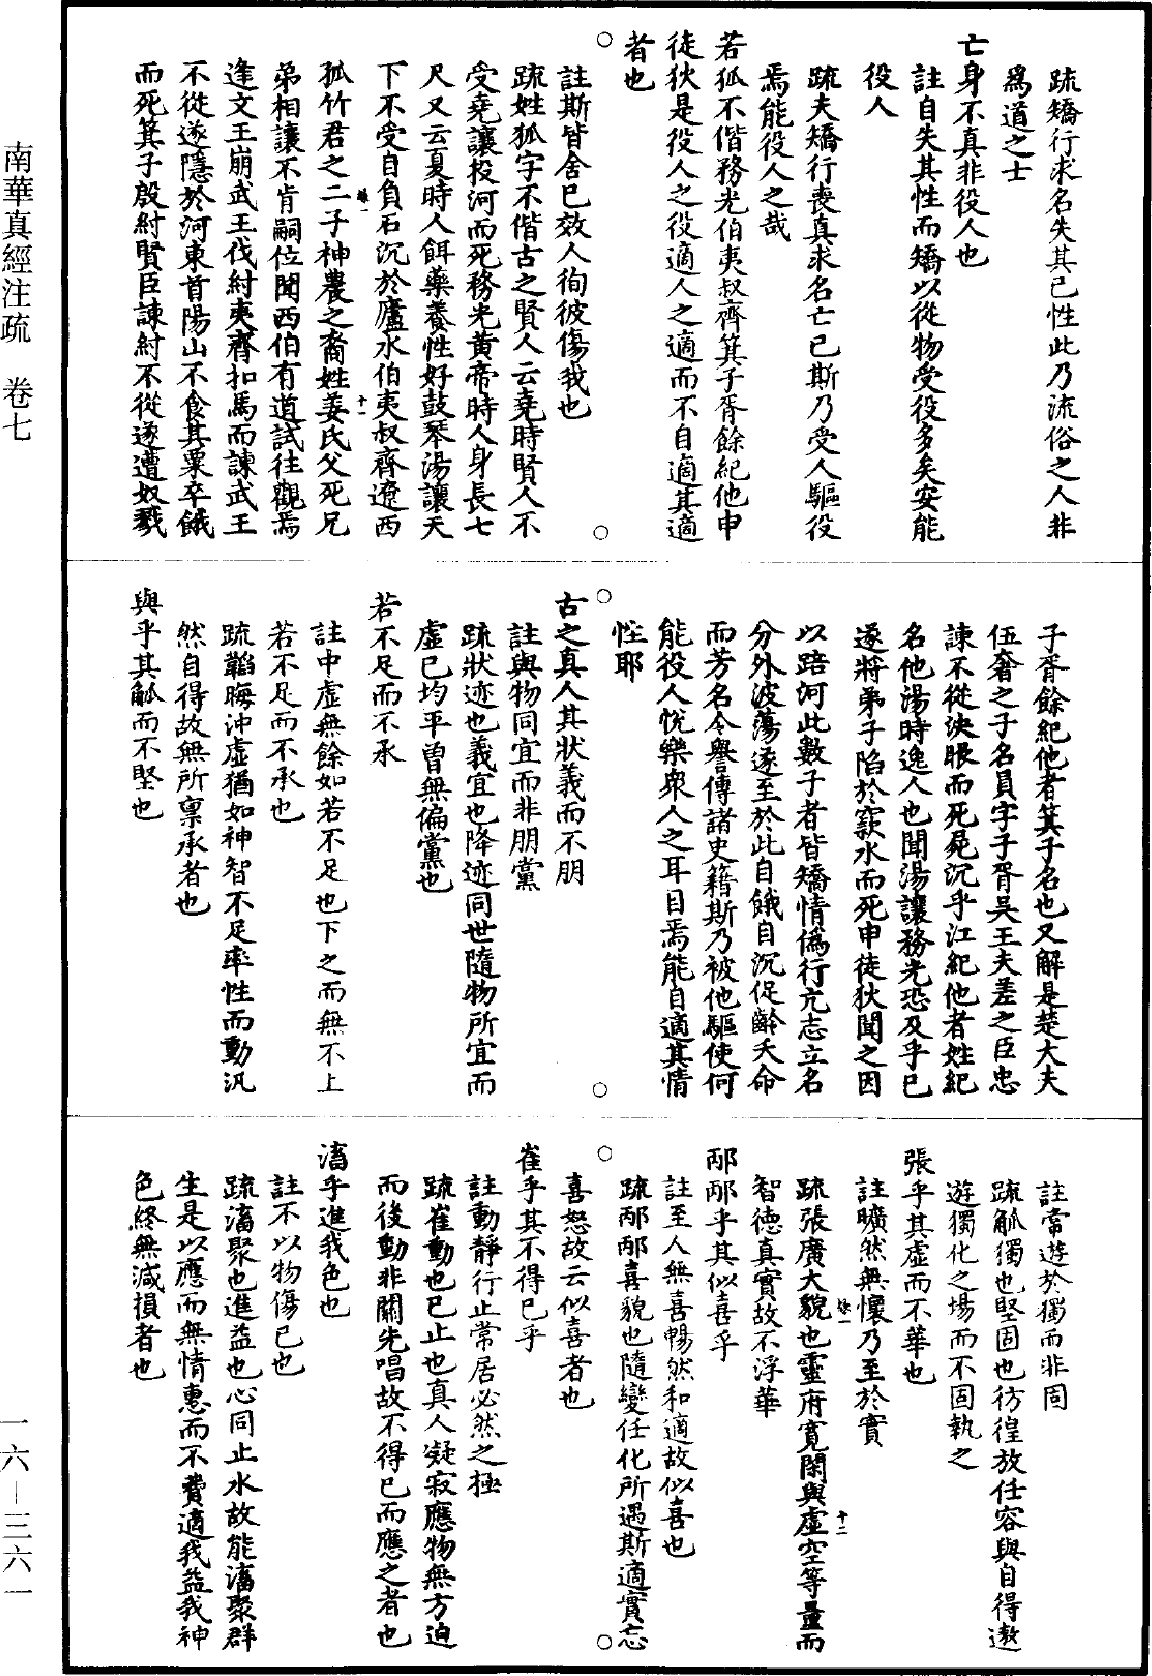 疏矯行求名失其己性此乃流俗之人非
爲道之士
亡身不真非役人也
註自失其性而矯以從物受役多矣安能
役人
疏夫矯行喪真求名亡己斯乃受人驅役
焉能役人之哉
若狐不偕務光伯夷叔齊箕子胥餘紀他申
徒狄是役人之役適人之適而不自適其適
者也
註斯皆舍己效人徇彼傷我也
疏姓狐字不偕古之賢人云堯時賢人不
受堯讓投河而死務光黃帝時人身長七
尺又云夏時人餌藥養性好鼓琴湯讓天
下不受自負石沉於廬水伯夷叔齊遼西
孤竹君之二子神農之裔姓姜氏父死兄
弟相讓不肯嗣位聞西伯有道試往觀焉
逢文王崩武王伐紂夷齊扣馬而諫武王
不從遂隱於河東首陽山不食其粟卒餓
而死箕子殷紂賢臣諫紂不從遂遭奴戮
子胥餘紀他者箕子名也又解是楚大夫
伍奢之子名員字子胥吳王夫差之臣忠
諫不從決眼而死屍沉乎江紀他者姓紀
名他湯時逸人也聞湯讓務光恐及乎己
遂將弟子陷於窾水而死申徒狄聞之因
以踣河此數子者皆矯情僞行亢志立名
分外波蕩遂至於此自餓自沉促齡夭命
而芳名令譽傳諸史籍斯乃被他驅使何
能役人悅樂衆人之耳目焉能自適其情
性耶
古之真人其狀義而不朋
註與物同宜而非朋黨
疏狀迹也義宜也降迹同世隨物所宜而
虛己均平曾無偏黨也
若不足而不承
註中虛無餘如若不足也下之而無不上
若不足而不承也
疏韜晦沖虛猶如神智不足率性而動汎
然自得故無所稟承者也
與乎其觚而不堅也
註常遊於獨而非固
疏觚獨也堅固也彷徨放任容與自得遨
遊獨化之場而不固執之
張乎其虛而不華也
註曠然無懷乃至於實
疏張廣大貌也靈府寬閑與虛空等量而
智德真實故不浮華
邴邴乎其似喜乎
註至人無喜暢然和適故似喜也
疏邴邴喜貌也隨變任化所遇斯適實忘
喜怒故云似喜者也
崔乎其不得已乎
註動靜行止常居必然之極
疏崔動也已止也真人凝寂應物無方迫
而後動非關先唱故不得已而應之者也
滀乎進我色也
註不以物傷己也
疏滀聚也進益也心同止水故能滀聚群
生是以應而無情惠而不費適我益我神
色終無減損者也
南華真經注疏 卷七
一六—三六一